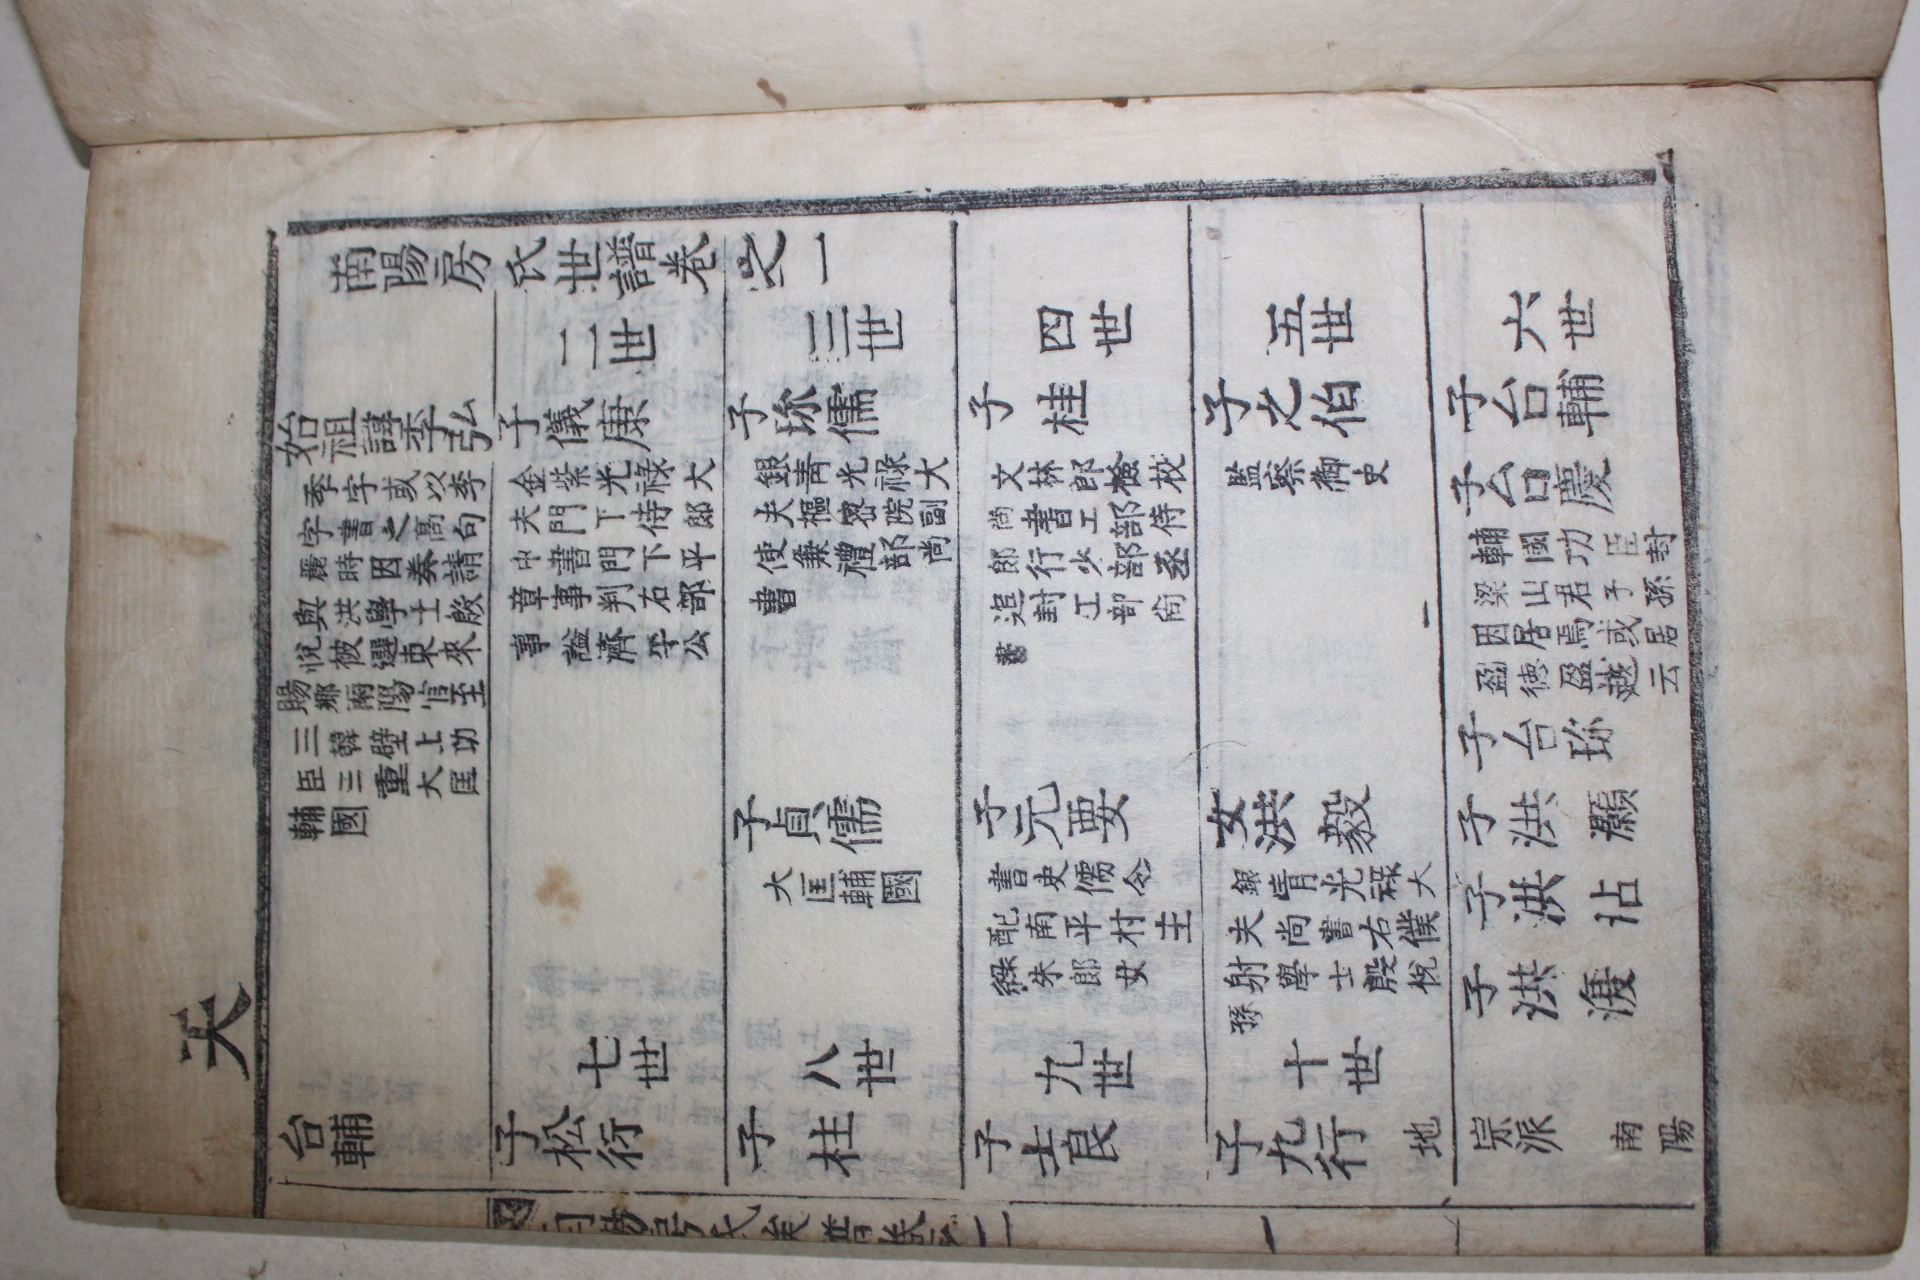 天
南陽房氏世譜卷之一
始祖諱季弘
季字或以李
字書之高句
麗時因奏請
與洪學士殷
悅被選東來
賜鄕南陽官至
三韓壁上功
臣三重大匡
輔國
二世
子儀康
金紫光祿大
夫門下侍郞
中書門下平
章事判右部
事謚濟平公
三世
子珎儒
銀靑光祿大
夫樞密院副
使兼禮部尙
書
子貞儒
大匡輔國
四世
子桂
文林郞檢校
尙書工部侍
郞行少部丞
追封工部尙
書
子元要
書史儒令
配南平村主
朱郞女
五世
子之伯
監察御史
女洪毅
銀靑光祿大
夫尙書右僕
射學士殷悅
孫
六世
子台輔
子台慶
輔國功臣封
梁山君子孫
因居焉或居
盈德盈越云
子台珎
子洪灝
子洪沾
子洪
台輔
七世
子松行
八世
子柱
九世
子士良
十世
子九行
地
宗派
南陽